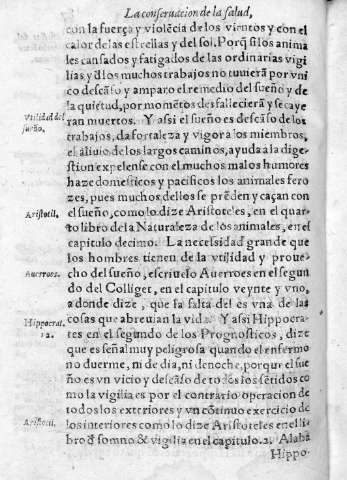 La conseruacion de la salud,
con la fuerça y violēcia de los viẽtos y con el
calor de las estrellas y del sol. Porq̃ si los anima
les cansados y fatigados de las ordinarias vigi
lias y d̃ los muchos trabajos no tuuierã por vni
co descãso y amparo el remedio del sueño y de
la quietud, por momẽtos des falleceriã y se caye
ran muertos. Y assi el sueño es descãso de los
Vtilidad del
sueño.
trabajos, da fortaleza y vigor a los miembros,
es aliuio de los largos caminos, ayuda a la dige
stion expelense con el muchos malos humores
haze domesticos y pacificos los animales fero
zes, pues muchos dellos se prẽden y caçan con
Aristotil.
el sueño, como lo dize Aristoteles, en el quar
to libro de la Naturaleza de los animales, en el
capitulo decimo. La necessidad grande que
los hombres tienen de la vtilidad y proue
Auerroes.
cho del sueño, escriuelo Auerroes en el segun
do del Colliget, en el capitulo veynte y vno,
a donde dize, que fa falta del es vna de las
cosas que abreuian la vida. Y assi Hippocra
Hippocrat.
12.
tes en el segundo de los Prognosticos, dize
que es señal muy peligrosa quando el enfermo
no duerme, ni de dia, ni de noche, porque el sue
ño es vn vicio y descãso de to los los sẽtidos co
mo la vigilia es por el contrario operacion de
todos los exteriores y vn cõtinuo exercicio de
Aristotil.
los interiores como lo dize Aristoteles en el li
bro d̃ somno & vigilia en el capitulo. 2. Alaba
Hippo-